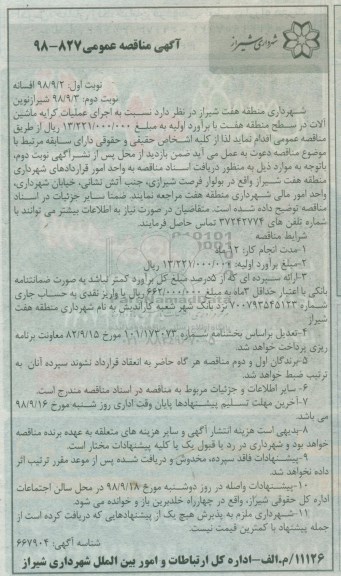 شهرداری شیراز
آگهی مناقصه عمومی ۸۲۷-۹۸
نوبت اول: ۹۸/۹/۲ افسانه
نوبت دوم: ۹۸/۹/۳ شیرازنوین
شهرداری منطقه هفت شیراز در نظر دارد نسبت به اجرای عملیات کرایه ماشین
آلات در سطح منطقه هفت با برآورد اولیه به مبلغ ۱۳/۲۲۱/۰۰۰/۰۰۰ ریال از طریق
مناقصه عمومی اقدام نماید لذا از کلیه اشخاص حقیقی و حقوق دارای سابقه مرتبط با
موضوع مناقصه دعوت به عمل می آید ضمن بازدید از محل پس از نشر آگهی نوبت دوم،
باتوجه به موارد ذیل به منظور دریافت اسناد مناقصه به واحد امور قراردادهای شهرداری
منطقه هفت شیراز واقع در بولوار فرصت شیرازی، جنب آتش نشانی، خیابان شهرداری،
واحد امور مالی شهرداری منطقه هفت مراجعه نمایند. ضمنا سایر جزئیات در اسناد
مناقصه توضیح داده شده است. متقاضیان در صورت نیاز به اطلاعات بیشتر می توانند با
شماره تلفن های ۳۷۲۴۲۷۷۴ تماس حاصل فرمایند.
شرایط مناقصه
۱-مدت انجام کار: ۱۲ ماه
۲-مبلغ برآورد اولیه: ۱۳/۲۲۱/۰۰۰/۰۰۰ ریال
۳-ارائه سپرده ای که از ۵درصد مبلغ کل برآورد کمتر نباشد به صورت ضمانتنامه
بانکی با اعتبار حداقل ۳ماه به مبلغ ۶۶۲/۰۰۰/۰۰۰ ریال یا واریز نقدی به حساب جاری
شماره ۷۰۰۷۹۳۵۴۵۱۲۳ نزد بانک شهر شعبه کارآندیش به نام شهرداری منطقه هفت
شیراز
۴-تعدیل براساس بخشنامه شماره ۱۰۱/۱۷۳۰۷۳ مورخ ۸۲/۹/۱۵ معاونت برنامه
ریزی پرداخت خواهد شد.
۵-برندگان اول و دوم مناقصه هر گاه حاضر به انعقاد قرارداد نشوند سپرده آنان به
ترتیب ضبط خواهد شد.
۶- سایر اطلاعات و جزئیات مربوط به مناقصه در اسناد مناقصه مندرج است.
۷-آخرین مهلت تسلیم پیشنهادها پایان وقت اداری روز شنبه مورخ ۹۸/۹/۱۶
می باشد.
۸-بدیهی است هزینه انتشار آگهی و سایر هزینه های متعلقه به عهده برنده مناقصه
خواهد بود و شهرداری در رد یا قبول یک یا کلیه پیشنهادات مختار است.
۹-پیشنهادات فاقد سپرده، مخدوش و دریافت شده پس از موعد مقرر ترتیب اثر
داده نخواهد شد.
۱۰-پیشنهادات واصله در روز دوشنبه مورخ ۹۸/۹/۱۸ در محل سالن اجتماعات
اداره کل حقوقی شیراز، واقع در چهارراه خلدبرین باز و خوانده می شود.
۱۱-شهرداری ملزم به پذیرش هیچ یک از پیشنهادهایی که دریافت کرده است از
جمله پیشنهاد با کمترین قیمت نیست.
شناسه آگهی: ۶۶۷۹۰۴
۱۱۱۲۶/م.الف-اداره کل ارتباطات و امور بین الملل شهرداری شیراز